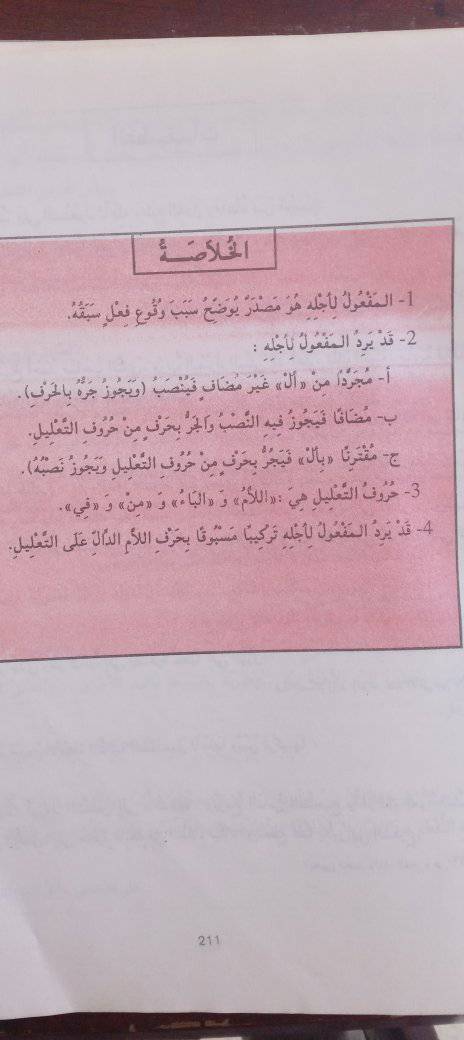 الخُلاَصَـــةُ
1- المَفْعُولُ لِأَجْلِهِ هُوَ مَصْدَرٌ يُوَضِّحُ سَبَبَ وُقُوعِ فِعْلٍ سَبَقَهُ.
2- قَدْ يَرِدُ المَفْعُولُ لِأَجْلِهِ :
أ- مُجَرَّدًا مِنْ «أَلْ» غَيْرَ مُضَافٍ فَيُنْصَبُ (وَيَجُوزُ جَرُّهُ بِالحَرْفِ).
ب- مُضَافًا فَيَجُوزُ فِيهِ النَّصْبُ وَالجَرُّ بِحَرْفٍ مِنْ حُرُوفِ التَّعْلِيلِ.
ج- مُقْتَرِنًا «بِأَلْ» فَيُجَرُّ بِحَرْفٍ مِنْ حُرُوفِ التَّعْلِيلِ وَيَجُوزُ نَصْبُهُ).
3- حُرُوفُ التَّعْلِيلِ هِيَ :«اللاَّمُ» وَ «البَاءُ» وَ «مِنْ» وَ «فِي».
4- قَدْ يَرِدُ المَفْعُولُ لِأَجْلِهِ تَرْكِيبًا مَسْبُوقًا بِحَرْفِ اللاَّمِ الدَّالِّ عَلَى التَّعْلِيلِ.
211